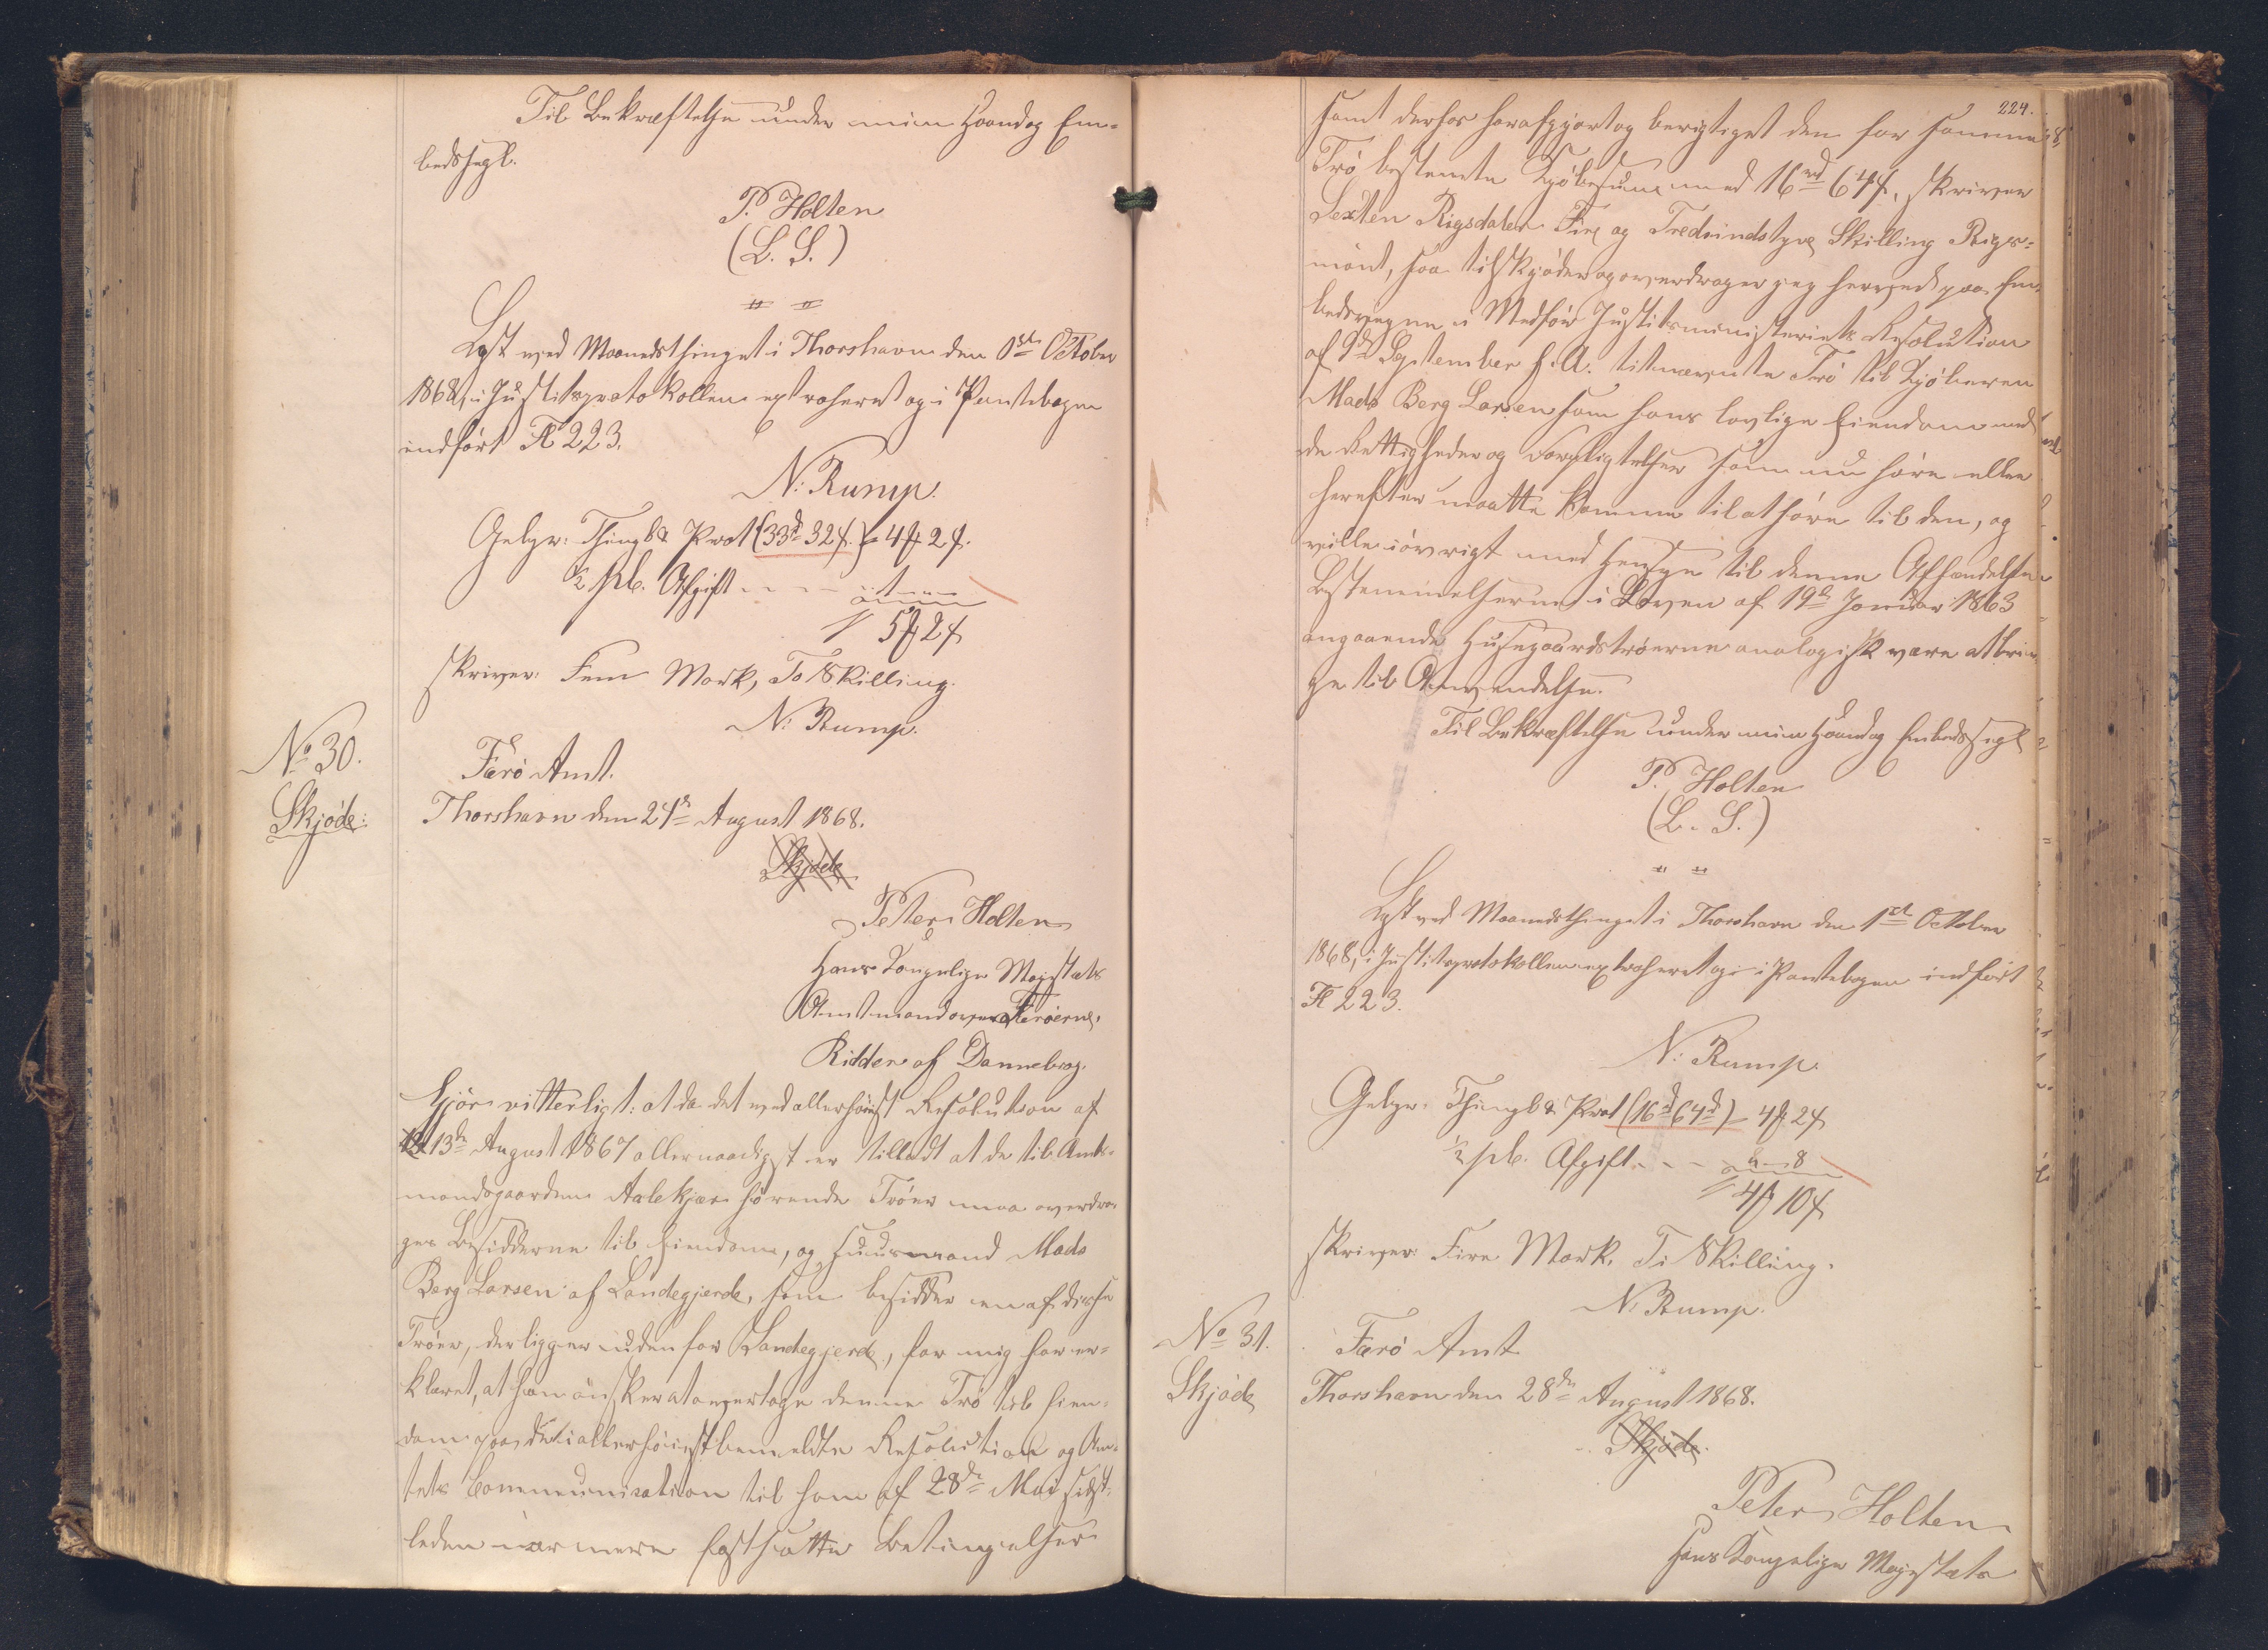 Til Bekræftelse under min Haand og Em-
bedssegl.
P. Holten
(L. S.)
Læst ved Maanedsthinget i Thorshavn den 1ste October
1868, i Justitsprotokollen extraheret og i Pantebogen
indført Fl 223.
N: Rump.
Gebyr: Thingl & Prot (33rd 32ß.) = 4 mk 2ß.
½ pCt. Afgift - - - - 1 - "
5 mk 2ß
skriver: Fem Mark, To Skilling.
N: Rump.
No 30.
Skjöde:
Færö Amt.
Thorshavn den 24de August 1868.
Skjöde
Peter Holten
Hans Kongelige Majestæts
Amtmand over Færöerne,
Ridder af Dannebrog.
Gjör vitterligt: at da det ved allerhöiest Resolution af
13de August 1867 allernaadigst er tilladt at de til Amt-
mandsgaarden Aalekjær hörende Tröer maa overdra-
ges Besidderne til Eiendom, og Huusmand Mads
Berg Larsen af Sandegjerde, som besidder en af disse
Tröer, der ligger udenfor Sandegjerde, for mig har er-
klæret, at han önsker at overtage denne Trö til Eien-
dom paa de i allerhöiestbemeldte Resolution og Am-
tets Communication til ham af 28de Mai sidst-
leden nærmere fastsatte Betingelser
224.
samt derfor har afgjort og berigtiget den for samme
Trö bestemte Kjöbesum med 16rd 64ß, skriver
Sexten Rigsdaler Fire og Tredsindstyve Skilling Rigs-
mönt, saa tilskjöder og overdrager jeg herved paa Em-
bedsvegne i Medför Justitsministeriets Resolution
af 9de September f. A. titnævnte Trö til Kjöberen
Mads Berg Larsen som hans lovlige Eiendom med
de Rettigheder og Forpligtelser som nu höre eller
herefter maatte komme til at höre til den, og
ville iövrigt med Hensyn til denne Afhændelse
Bestemmelserne i Loven af 19de Januar 1863
angaaende Husegaardströerne analogisk være at brin-
ge til Anvendelse.
Til Bekræftelse under min Haand og Embedssegl
P. Holten
(L. S.)
Læst ved Maanedsthinget i Thorshavn den 1ste October
1868, i Justitsprotokollen extraheret og i Pantebogen indfört
Fl 223.
N: Rump.
Gebyr: Thingl & Prot (16rd 64ß) = 4 mk 2ß
½ pCt. Afgift. - - - " - 8
4 mk 10ß
skriver: Fire Mark, Ti Skilling.
N: Rump.
No 31.
Skjöde
Færö Amt
Thorshavn den 28de August 1868.
Skjöde.
Peter Holten
Hans Kongelige Majestæts